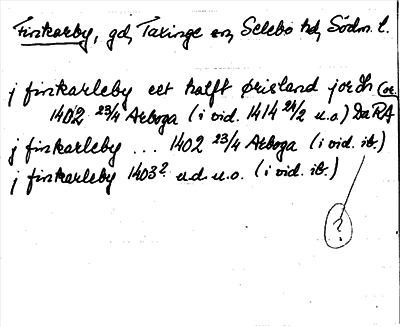 Finkarby, gd, Taxinge sn, Selebo hd, Södm. l.
j finkarleby eet halft ørisland jordh (or.
1402 23/4 Arboga (i vid. 1414 24/2 u.o.) DaRA
j finkarleby ... 1402 23/4 Arboga (i vid. ib.)
j finkarleby 1403? u.d. u.o. (i vid. ib.)
?